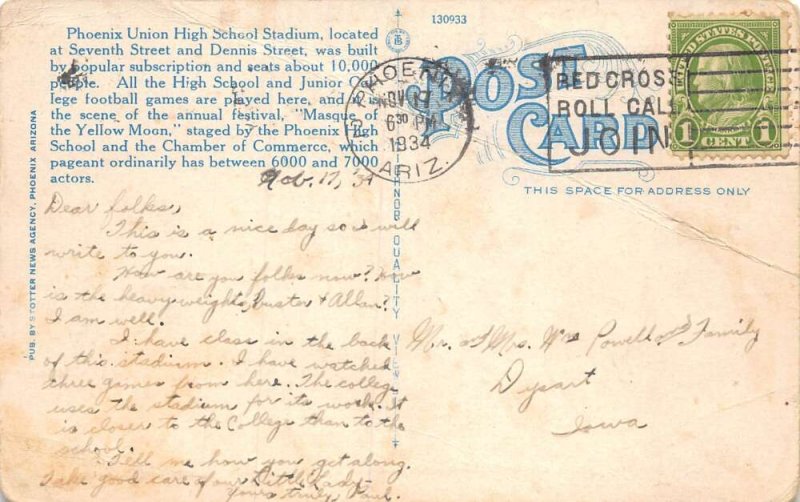 Phoenix Union High School Stadium, located
at Seventh Street and Dennis Street, was built
by popular subscription and seats about 10,000
people. All the High School and Junior Col-
lege football games are played here, and it is
the scene of the annual festival, "Masque of
the Yellow Moon," staged by the Phoenix High
School and the Chamber of Commerce, which
pageant ordinarily has between 6000 and 7000
actors.
PUB. BY STOTTER NEWS AGENCY, PHOENIX, ARIZONA
130933
POST
CARD
THIS SPACE FOR ADDRESS ONLY
PHOENIX
NOV 17
6 30 PM
1934
ARIZ.
RED CROSS
ROLL CALL
JOIN
UNITED STATES POSTAGE
1 CENT 1
QUALITY VIEWS
Nov. 17, 34
Dear folks,
This is a nice day so I will
write to you.
How are you folks now? How
is the heavy weights, Buster & Allan?
I am well.
I have class in the back
of this stadium. I have watched
three games from here. The college
uses the stadium for its work. It
is closer to the College than to the
school.
Tell me how you get along.
Take good care of our Little Lady.
Yours truly, Paul.
Mr. and Mrs. Wm Powell and Family
Dysart
Iowa